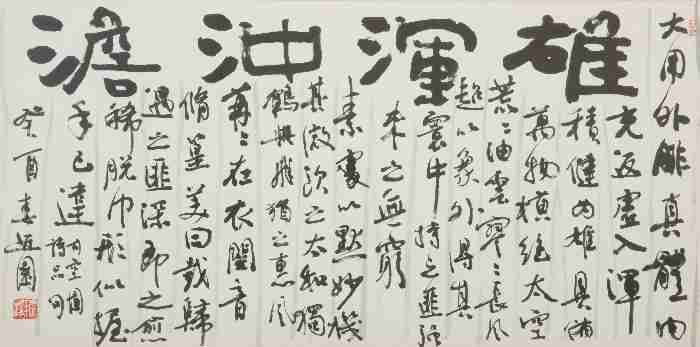 雄渾沖澹
大用外腓真體內
充返虛入渾
積健為雄具備
萬物橫絕太空
荒〻油雲寥〻長風
超以象外得其
寰中持之匪強
來之無窮
素處以默妙機
其微飲之太和獨
鶴與飛猶之惠風
苒〻在衣閱音
脩篁美曰載歸
遇之匪深即之愈
稀脫有形似握
手已違
司空圖
詩品句
癸酉春